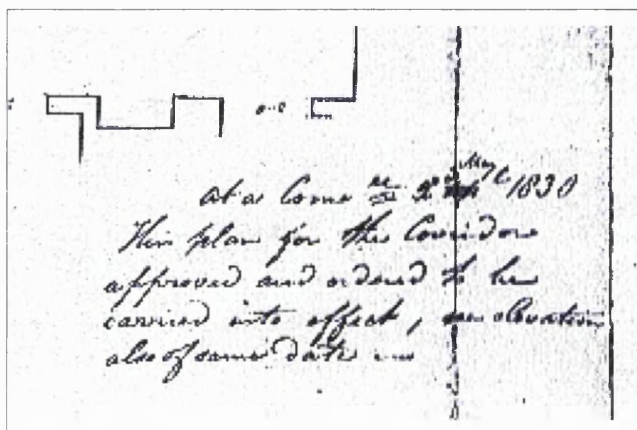 at a Comee 2d May 1830
This plan for the Corridore
approved and ordered to be
carried into effect, see elevation
also of same date